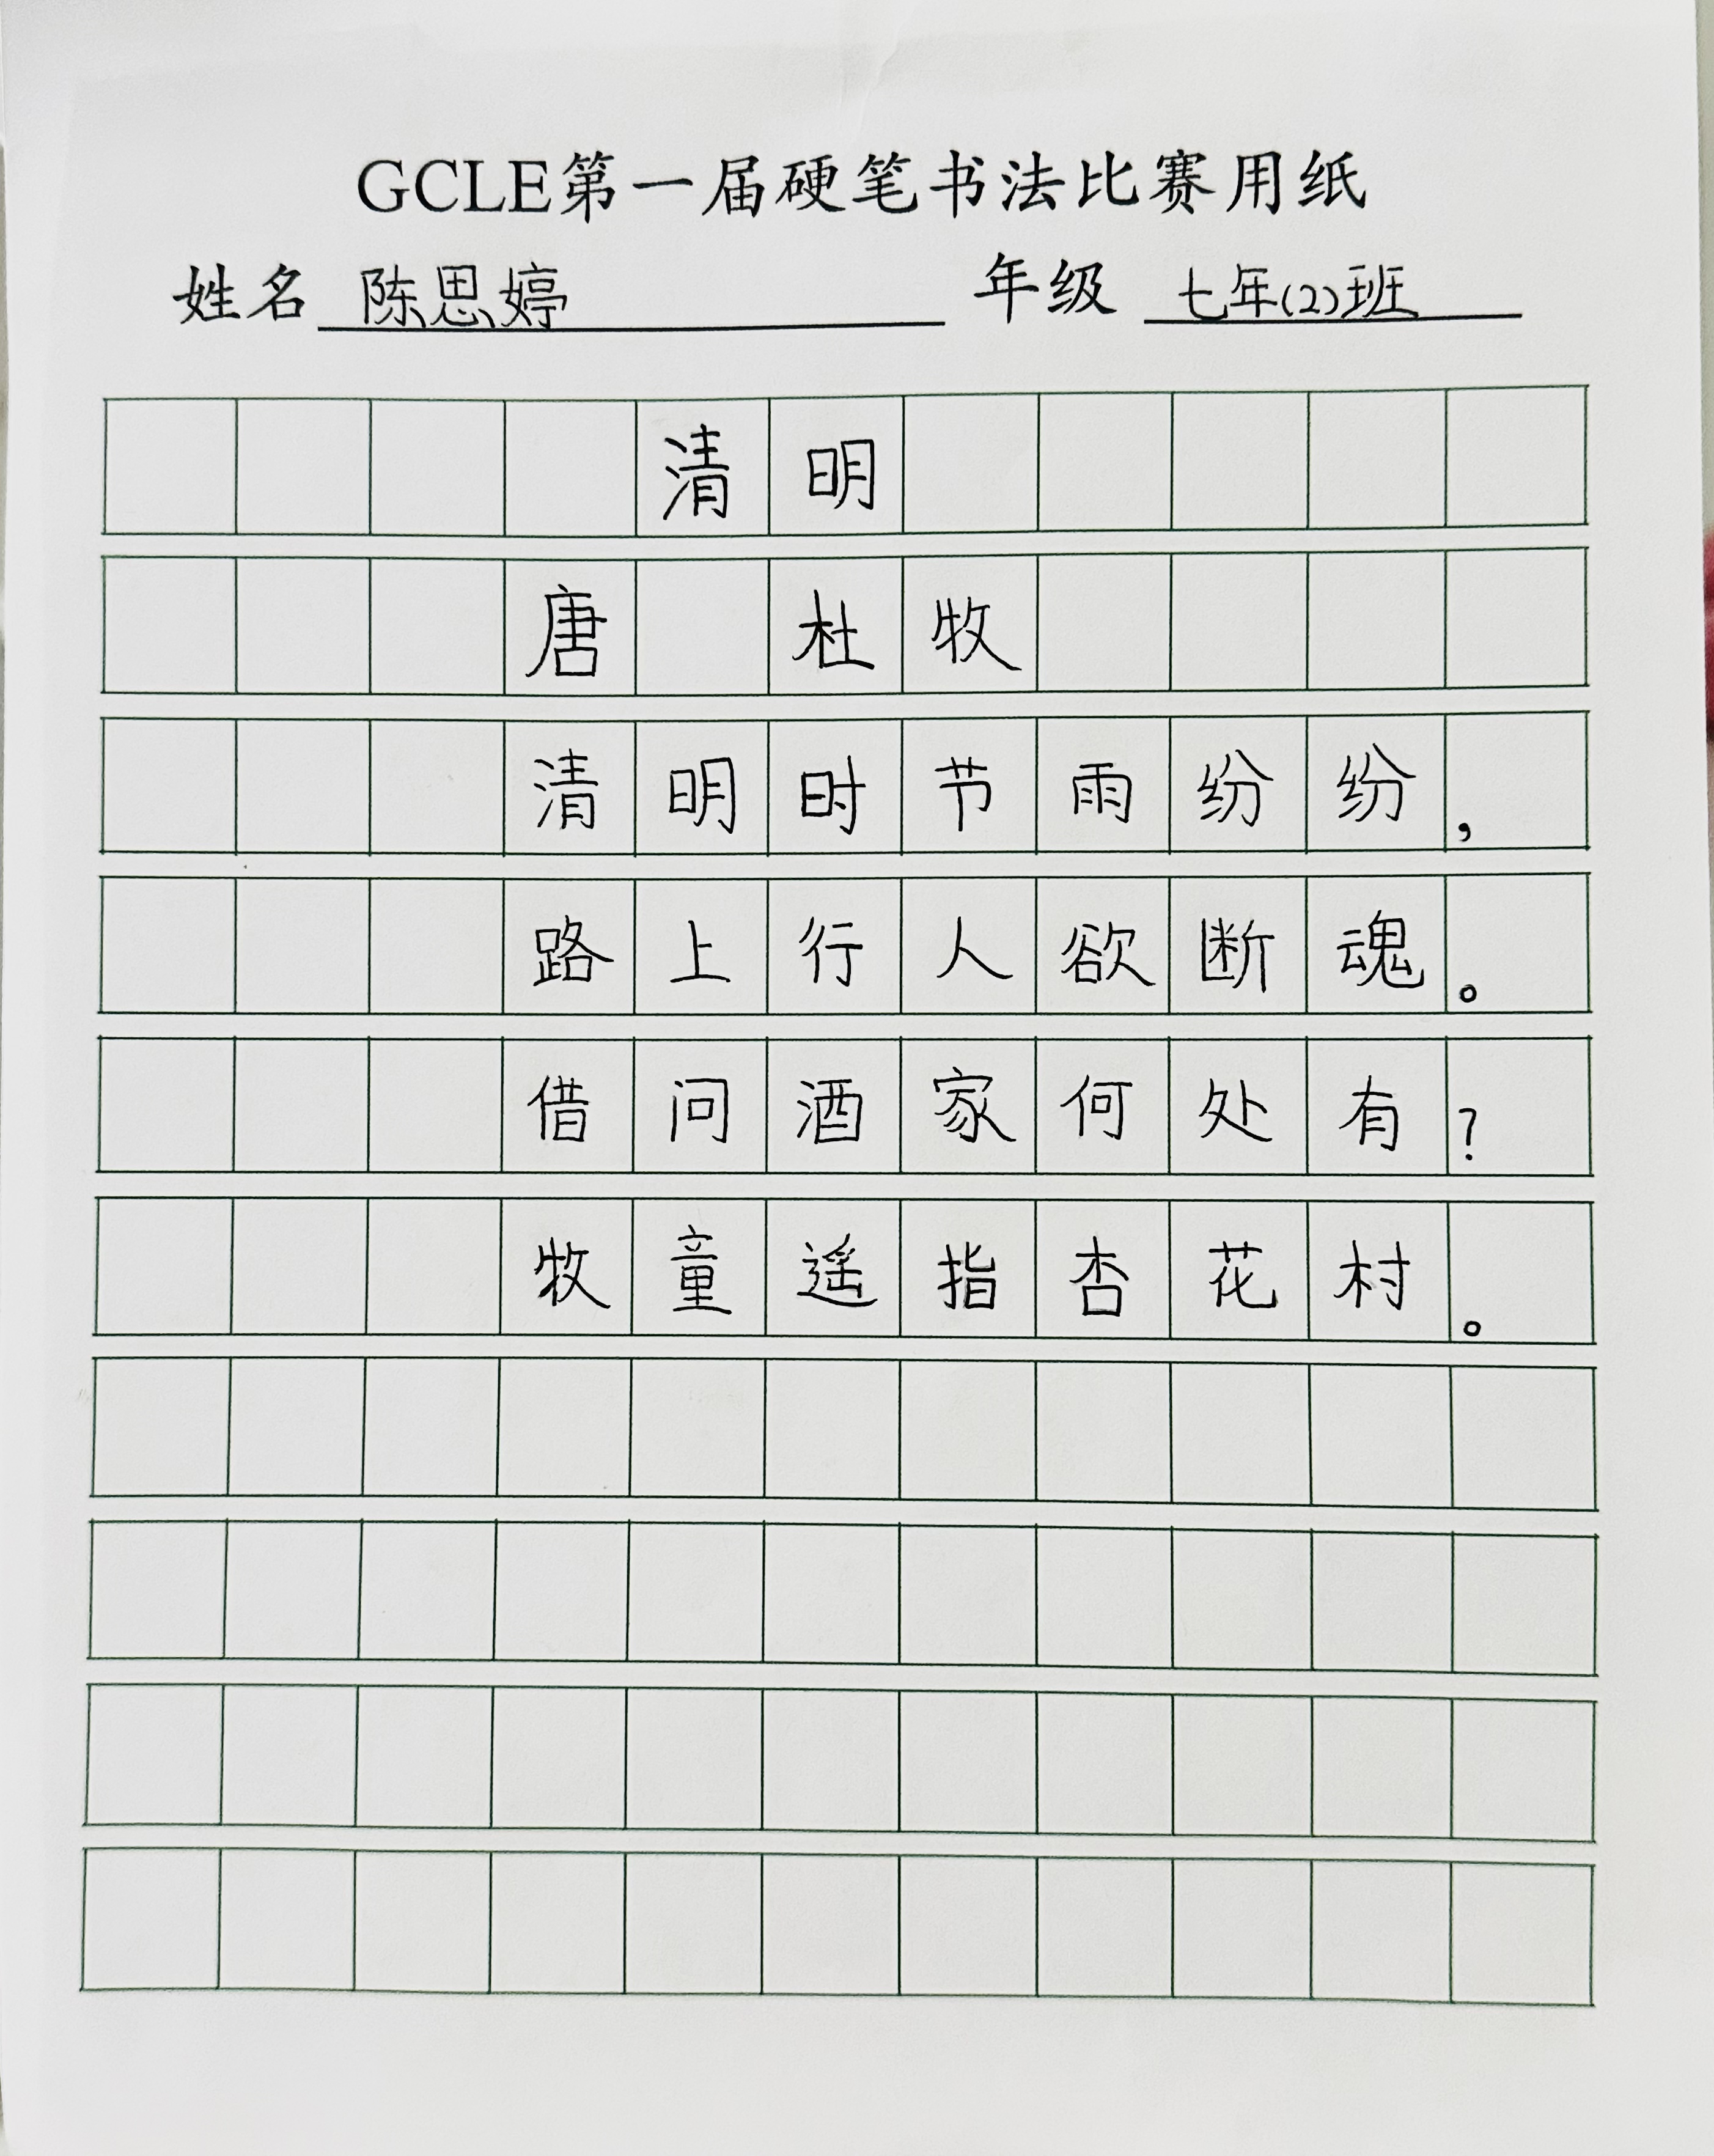 GCLE第一届硬笔书法比赛用纸
姓名 陈思婷 年级 七年(2)班
清明
唐 杜牧
清明时节雨纷纷，
路上行人欲断魂。
借问酒家何处有?
牧童遥指杏花村。